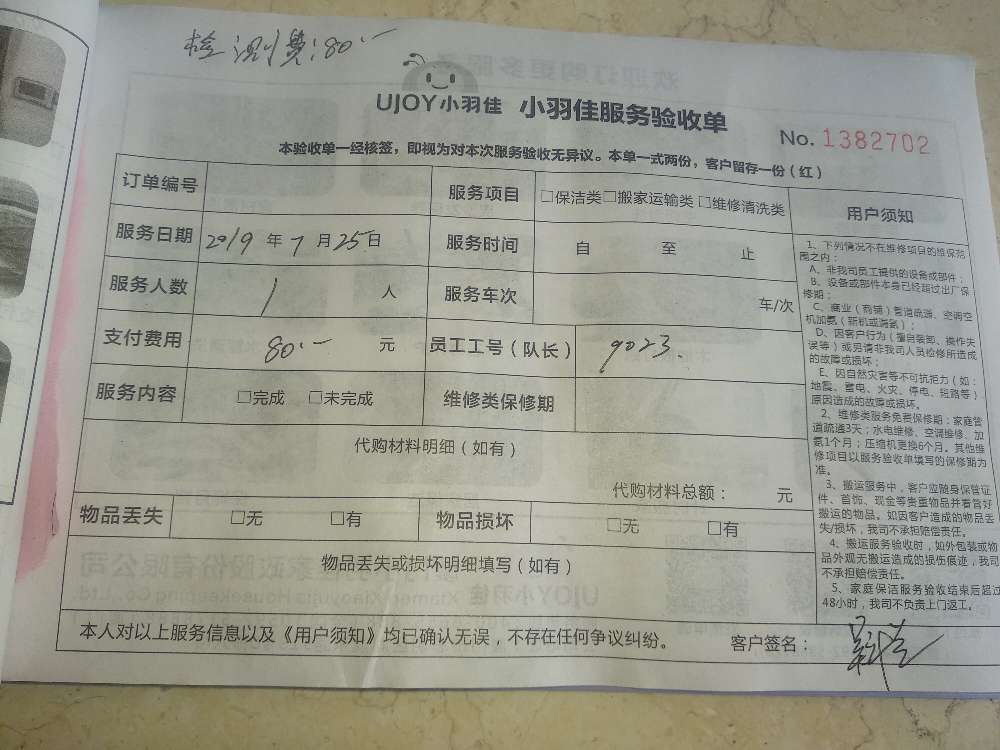 检测费:80.—
UJOY小羽佳 小羽佳服务验收单
No. 1382702
本验收单一经核签，即视为对本次服务验收无异议。本单一式两份，客户留存一份（红）
订单编号 服务项目 □保洁类□搬家运输类 □维修清洗类
服务日期 2019 年 7 月 25 日 服务时间 自 至 止
服务人数 1 人 服务车次 车/次
支付费用 80.— 元 员工工号（队长） 9023.
服务内容 □完成 □未完成 维修类保修期
代购材料明细（如有）
代购材料总额： 元
物品丢失 □无 □有 物品损坏 □无 □有
物品丢失或损坏明细填写（如有）
本人对以上服务信息以及《用户须知》均已确认无误，不存在任何争议纠纷。 客户签名：
用户须知
1、下列情况不在维修项目的维保范
围之内：
A、非我司员工提供的设备或部件；
B、设备或部件本身已经超过出厂保
修期；
C、商业（商铺）管道疏通、空调空
机加氨（新机或漏氨）；
D、因客户行为（擅自装卸、操作失
误等）或另请非我司人员检修所造成
的故障或损坏；
E、因自然灾害等不可抗拒力（如：
地震、雷电、火灾、停电、短路等）
原因造成的故障或损坏。
2、维修类服务免费保修期：家庭管
道疏通3天；水电维修、空调维修、加
氨1个月；压缩机更换6个月。其他维
修项目以服务验收单填写的保修期为
准。
3、搬运服务中，客户应随身保管证
件、首饰、现金等贵重物品并看管好
搬运的物品。如因客户造成的物品丢
失/损坏，我司不承担赔偿责任。
4、搬运服务验收时，如外包装或物
品外观无搬运造成的损伤痕迹，我司
不承担赔偿责任。
5、家庭保洁服务验收结束后超过
48小时，我司不负责上门返工。